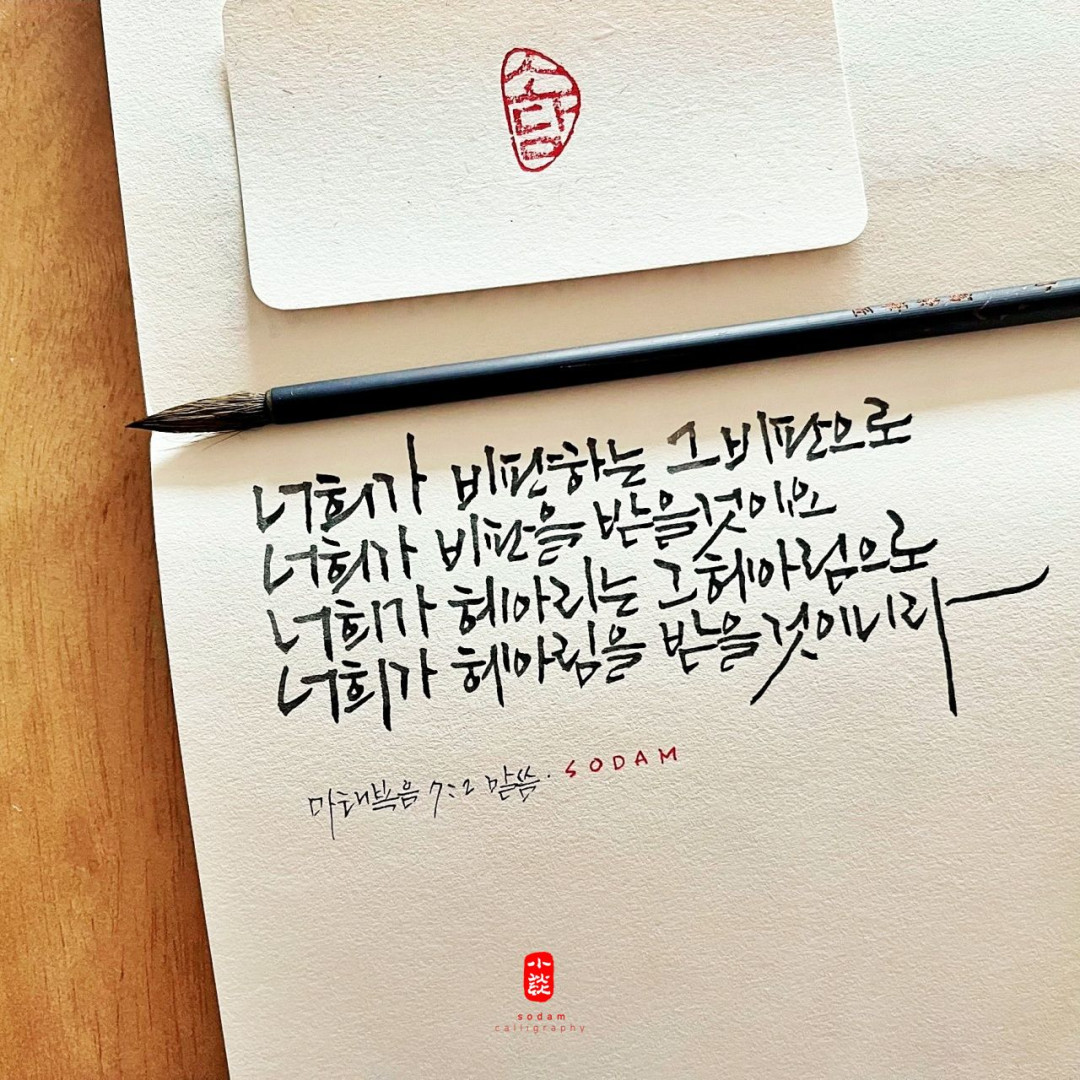 소담
너희가 비판하는 그 비판으로
너희가 비판을 받을것이요
너희가 헤아리는 그 헤아림으로
너희가 헤아림을 받을것이니라
마태복음 7:2 말씀. SODAM
小談
sodam
calligraphy